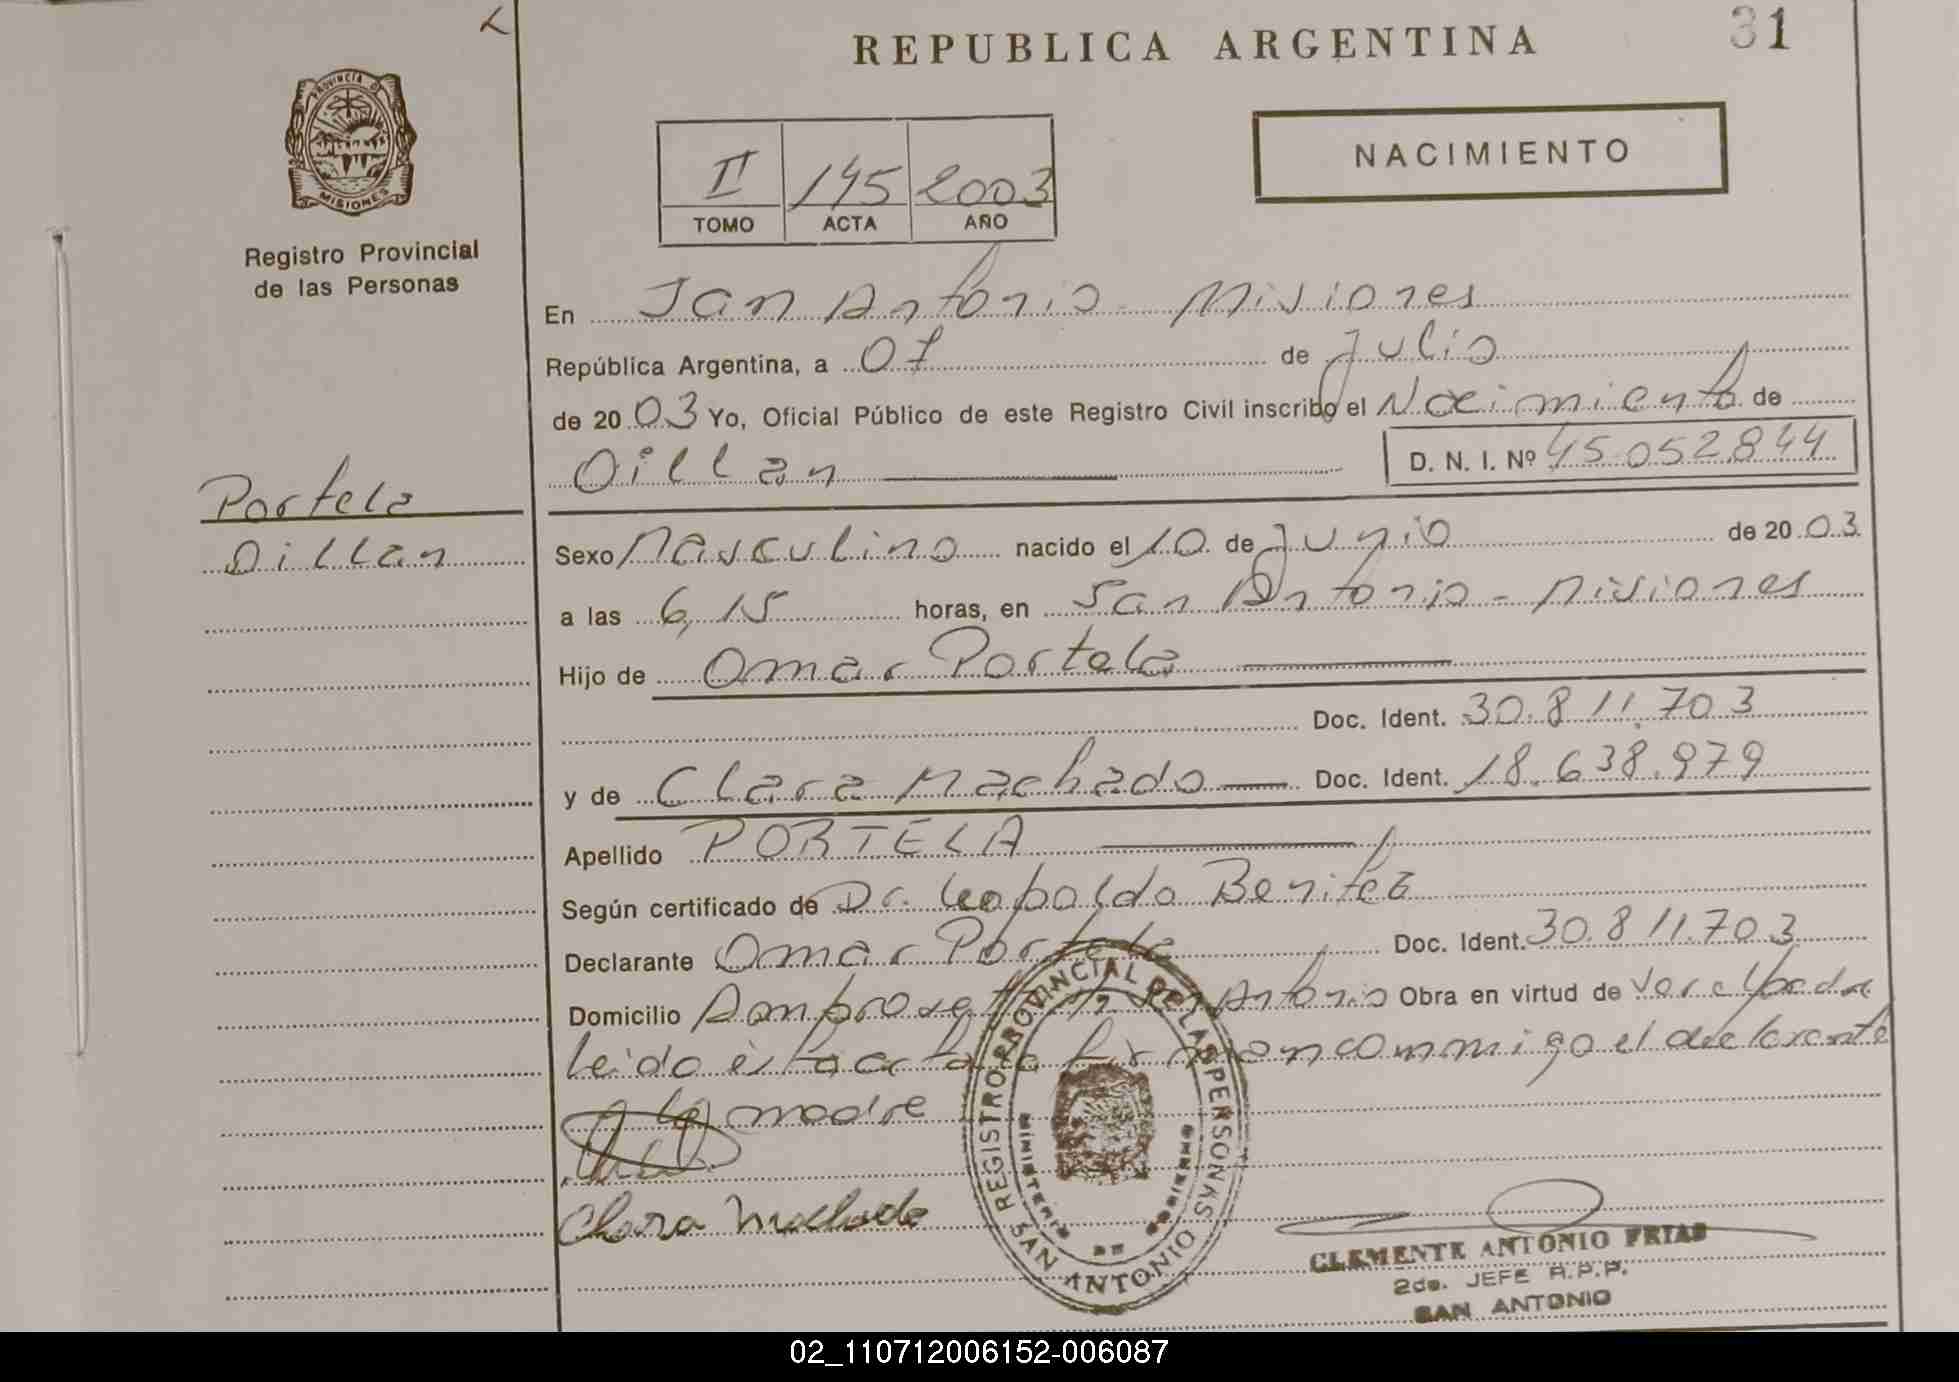 REPUBLICA ARGENTINA
31
PROVINCIA DE
MISIONES
Registro Provincial
de las Personas
II 145 2003
TOMO ACTA AÑO
NACIMIENTO
En San Antonio - Misiones
República Argentina, a 07 de Julio
de 2003 Yo, Oficial Público de este Registro Civil inscribo el Nacimiento de
Oillan D. N. I. Nº 45.052.844
Portela
Oillan
Sexo Masculino nacido el 10 de Junio de 2003
a las 6,15 horas, en San Antonio - Misiones
Hijo de Omar Portela
Doc. Ident. 30.811.703
y de Clara Machado Doc. Ident. 18.638.979
Apellido PORTELA
Según certificado de Dr. Leopoldo Benitez
Declarante Omar Portela Doc. Ident. 30.811.703
Domicilio San Antonio Obra en virtud de
Leido esta acta firman conmigo el declarante
la madre
Clara Machado
REGISTRO PROVINCIAL DE LAS PERSONAS
MINISTERIO DE GOBIERNO
SAN ANTONIO
CLEMENTE ANTONIO FRIAS
2do. JEFE R.P.P.
SAN ANTONIO
02_110712006152-006087